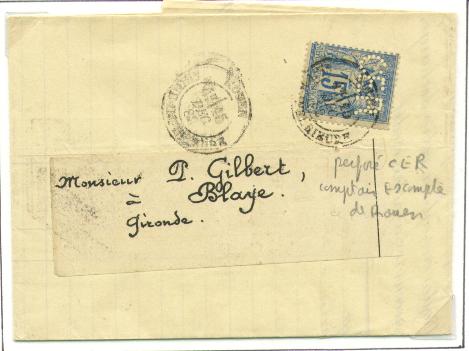 15
ROUEN
Monsieur P. Gilbert,
à Blaye.
Gironde.
perforé CER
comptoir Escompte
de Rouen